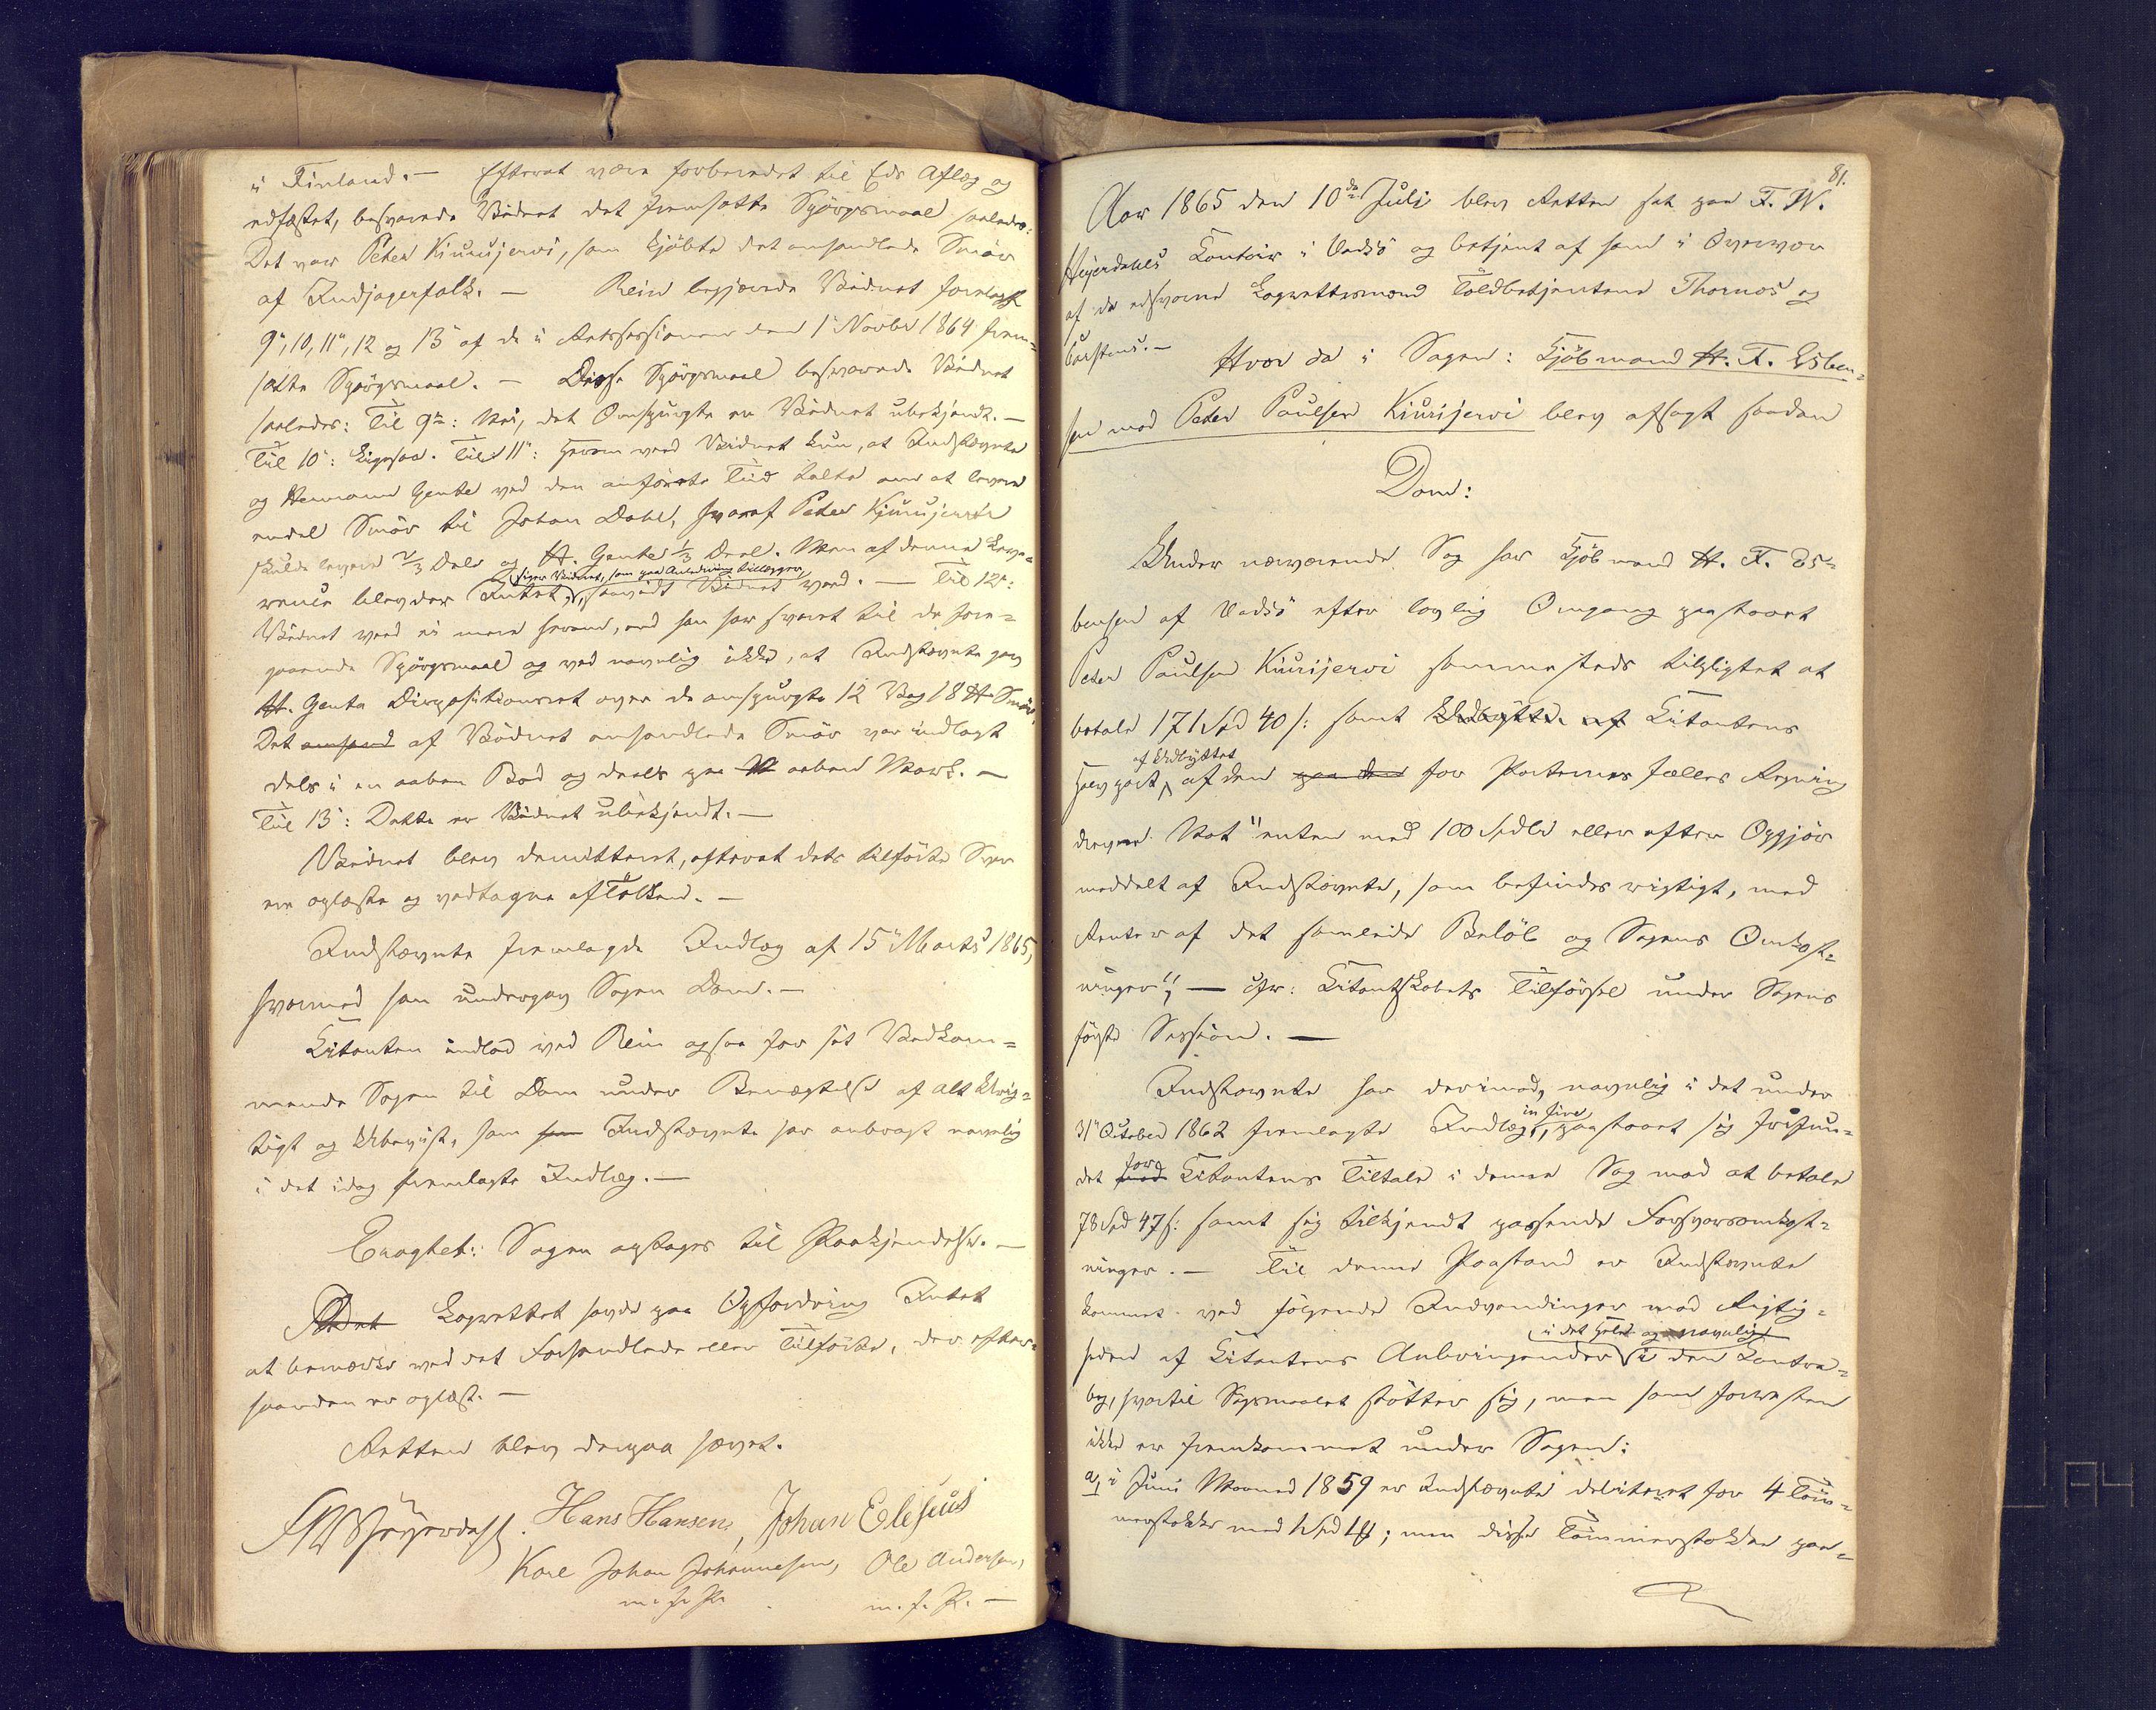 i Finland. — Efterat være forberedet til Eds Aflæg og
edfæstet, besvarede Vidnet det fremsatte Spörgsmaal saaledes:
Det var Peter Kiurujervi, som kjöbte det omhandlede Smör
af Indjagerfolk. — Rein begjærede Vidnet forelagt
9", 10, 11", 12 og 13" af de i Retssessionen den 1" Novbr 1864 frem-
satte Spörgsmaal. — Disse Spörgsmaal besvarede Vidnet
saaledes: Til 9de: Nei, det Omspurgte er Vidnet ubekjendt. —
Til 10": Ligesaa. Til 11": Herom veed Vidnet kun, at Indstævnte
og Hermann Gente ved den anförte Tid talte om at levere
endel Smör til Johan Dahl, hvoraf Peter Kiurujervi
skulde levere 2/3 Dele og H. Gente 1/3 Deel. Men af denne Leve-
(siger Vidnet, som paa Anledning tillægger,
rance blev der Intet, saavidt Vidnet veed. — Til 12":
Vidnet veed ei mere herom, end han har svaret til de fore-
gaaende Spörgsmaal og ved navnlig ikke, at Indstævnte gav
H. Gente Dispositionsret over de omspurgte 12 Vog 18 Smör.
Det af Vidnet omhandlede Smör var indlagt
dels i en aaben Bod og deels paa aaben Mark. —
Til 13": Dette er Vidnet ubekjendt. —
Vidnet blev demitteret, efterat dets tilförte Svar
ere oplæste og vedtagne af Tolken. —
Indstævnte fremlagde Indlæg af 15" Marts 1865,
hvormed han undergav Sagen Dom. —
Citanten indlod ved Rein ogsaa for sit Vedkom-
mende Sagen til Dom under Benægtelse af alt Urig-
tigt og Ubeviist, som Indstævnte har anbragt navnlig
i det idag fremlagte Indlæg. —
Eragtet: Sagen optages til Paakjendelse. —
Lagrettet havde paa Opfordring Intet
at bemærke ved det Forhandlede eller Tilförte, der efter-
haanden er oplæst. —
Retten blev derpaa hævet.
FWHeyerdahl. Hans Hansen, Johan Elesius
Karl Johan Johannesen, Ole Andersen,
m. f. P. m. f. P. —
81.
Aar 1865 den 10de Juli blev Retten sat paa F. W.
Heyerdahls Contoir i Vadsö og betjent af ham i Overvær
af de edsvorne Lagrettesmænd Toldbetjentene Thornös og
Carstens. —
Hvor da i Sagen: Kjöbmand H. F. Esben-
sen mod Peter Paulsen Kiurijervi blev afsagt saadan
Dom:
Under nærværende Sag har Kjöbmand H. F. Es-
bensen af Vadsö efter lovlig Omgang paastaaet
Peter Paulsen Kiurijervi sammesteds tilpligtet at
betale 171 Spd 40 s: samt Udbytte af Citantens
af Udbyttet
Halvpart, af den paa den for Parternes fælles Regning
drevne Not "enten med 100 Spdlr eller efter Opgjör
meddelt af Indstævnte, som befindes rigtigt, med
Renter af det samlede Belöb og Sagens Omkost-
ninger", — cfr: Citantskabets Tilförsel under Sagens
förste Session. —
Indstævnte har derimod, navnlig i det under
in fine
31" October 1862 fremlagte Indlæg, paastaaet sig frifun-
for
det mod Citantens Tiltale i denne Sag mod at betale
78 Spd 47 s: samt sig tilkjendt passende Forsvarsomkost-
ninger. — Til denne Paastand er Indstævnte
kommet ved fölgende Indvendinger mod Rigtig-
i det Hele og navnlig
heden af Citantens Anbringender i den Contra-
bog, hvortil Sögsmaalet stötter sig, men som forresten
ikke er fremkommet under Sagen:
a, i Juni Maaned 1859 er Indstævnte debiteret for 4 Töm-
merstokke med ; men disse Tömmerstokke paa-